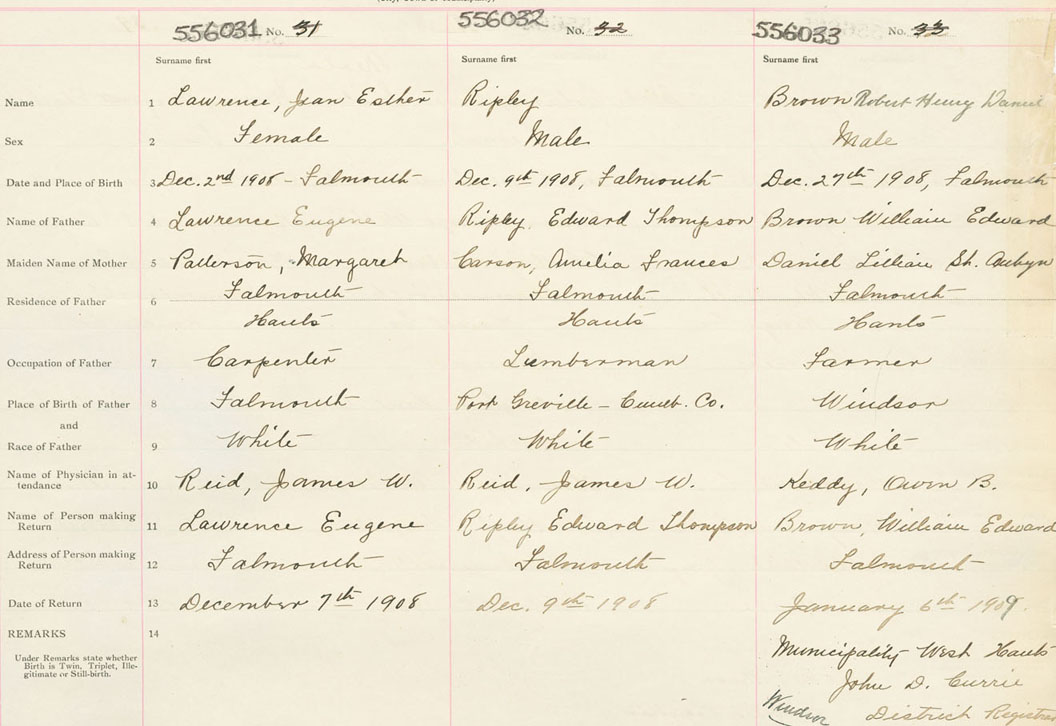 556031 No. 31 556032 No. 32 556033 No. 33
Surname first Surname first Surname first
Name 1 Lawrence, Jean Esther Ripley Brown Robert Henry Daniel
Sex 2 Female Male Male
Date and Place of Birth 3 Dec. 2nd 1908 - Falmouth Dec. 9th 1908, Falmouth Dec. 27th 1908, Falmouth
Name of Father 4 Lawrence Eugene Ripley Edward Thompson Brown William Edward
Maiden Name of Mother 5 Patterson, Margaret Carson, Amelia Frances Daniel Lillian St. Aubyn
Residence of Father 6 Falmouth Falmouth Falmouth
Hants Hants Hants
Occupation of Father 7 Carpenter Lumberman Farmer
Place of Birth of Father 8 Falmouth Port Greville - Cumb. Co. Windsor
and
Race of Father 9 White White White
Name of Physician in at-
tendance 10 Reid, James W. Reid, James W. Keddy, Owen B.
Name of Person making
Return 11 Lawrence Eugene Ripley Edward Thompson Brown, William Edward
Address of Person making
Return 12 Falmouth Falmouth Falmouth
Date of Return 13 December 7th 1908 Dec. 9th 1908 January 6th 1909.
REMARKS 14
Under Remarks state whether
Birth is Twin, Triplet, Ille-
gitimate or Still-birth.
Municipality West Hants
John D. Currie
Windsor District Registrar